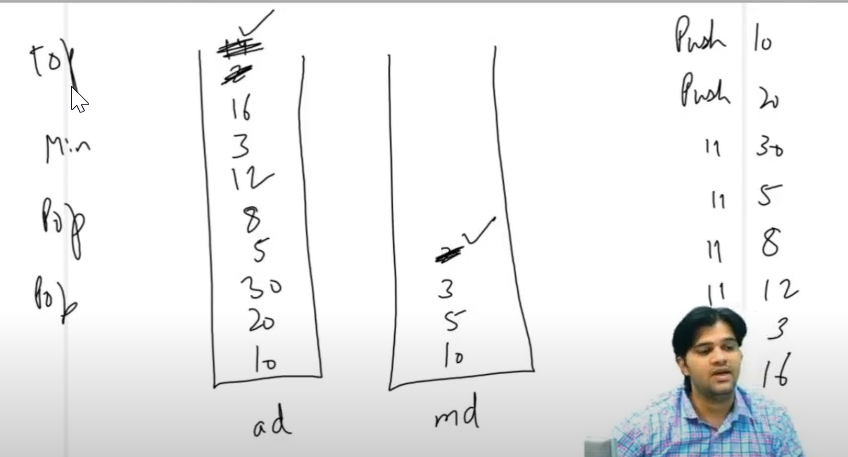 top
Min
Pop
Pop
16
3
12
8
5
30
20
10
ad
3
5
10
md
Push 10
Push 20
11 30
11 5
11 8
11 12
3
16